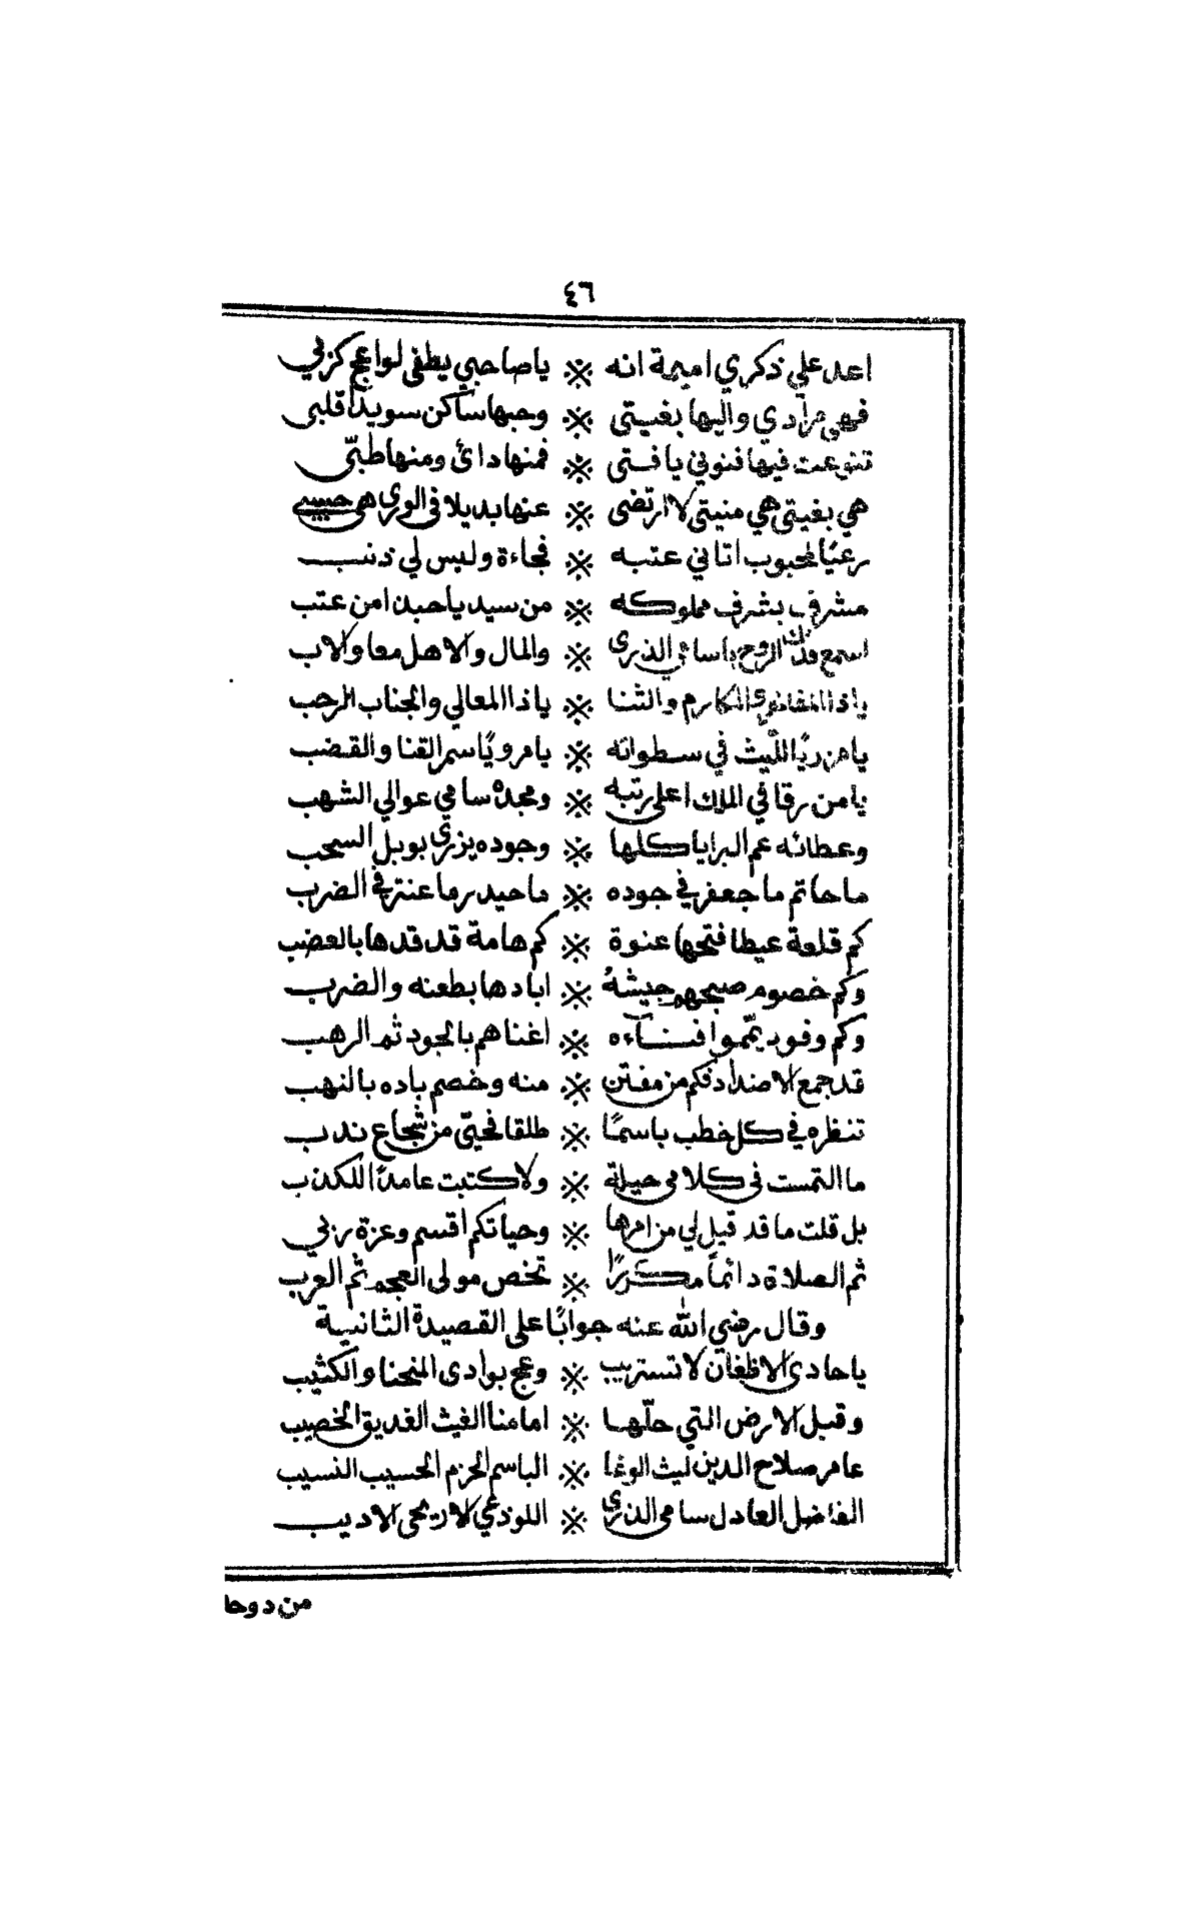 ٤٦
اعد علي ذكري اميمة انه ※ يا صاحبي يطفى لواعج كربي
فهي مرادي واليها بغيتى ※ وحبها ساكن سويدا قلبى
تنوعت فيها فنوني يا فتى ※ فمنها دائ ومنها طبّى
هي بغيتى هي منيتى لا ارتضى ※ عنها بديلا فى الورى هى حبيبي
رعيًا لمحبوب اتاني عتبه ※ فجاءة وليس لي ذنب
مشرف بشرف مملوكه ※ من سيد ياحبدا من عتب
اسمع فدتك الروح يا سامي الذرى ※ والمال والاهل معا والاب
ياذا المفاخر والمكارم والثنا ※ ياذا المعالي والجناب الرحب
يامن ربّا الليث في سطواته ※ يامرويًا سمر القنا والقضب
يامن رقا في الملك اعلى رتبه ※ ومجده سامي عوالي الشهب
وعطائه عم البرايا كلها ※ وجوده يزرى بوبل السحب
ما حاتم ما جعفر في جوده ※ ما حيدر ما عنتر في الضرب
كم قلعة عيطا فتحها عنوة ※ كم هامة قد قدها بالعضب
وكم خصوم صبحهم جيشهُ ※ ابادها بطعنه والضرب
وكم وفود يمّموا فنآءه ※ اغناهم بالجود ثم الرهب
قد جمع الاضداد فكم من مفتن ※ منه وخصم باده بالنهب
تنظره في كل خطب باسمًا ※ طلقا فحيّى من شجاع ندب
ما التمست فى كلامى حيلة ※ ولا كتبت عامدًا للكذب
بل قلت ما قد قيل لي من امرها ※ وحياتكم اقسم وعزة ربي
ثم الصلاة دائمًا مكررًا ※ تخص مولى العجم ثم العرب
وقال رضي الله عنه جوابًا على القصيدة الثانية
يا حادى الاظعان لا تستريب ※ وعج بوادى المنحنا والكثيب
وقبل الارض التي حلّها ※ امامنا الغيث الغديق الخصيب
عامر صلاح الدين ليث الوغا ※ الباسم الحزم الحسيب النسيب
الفاضل العادل سامى الذرى ※ اللوذعي الاريحى الاديب
من دوحا